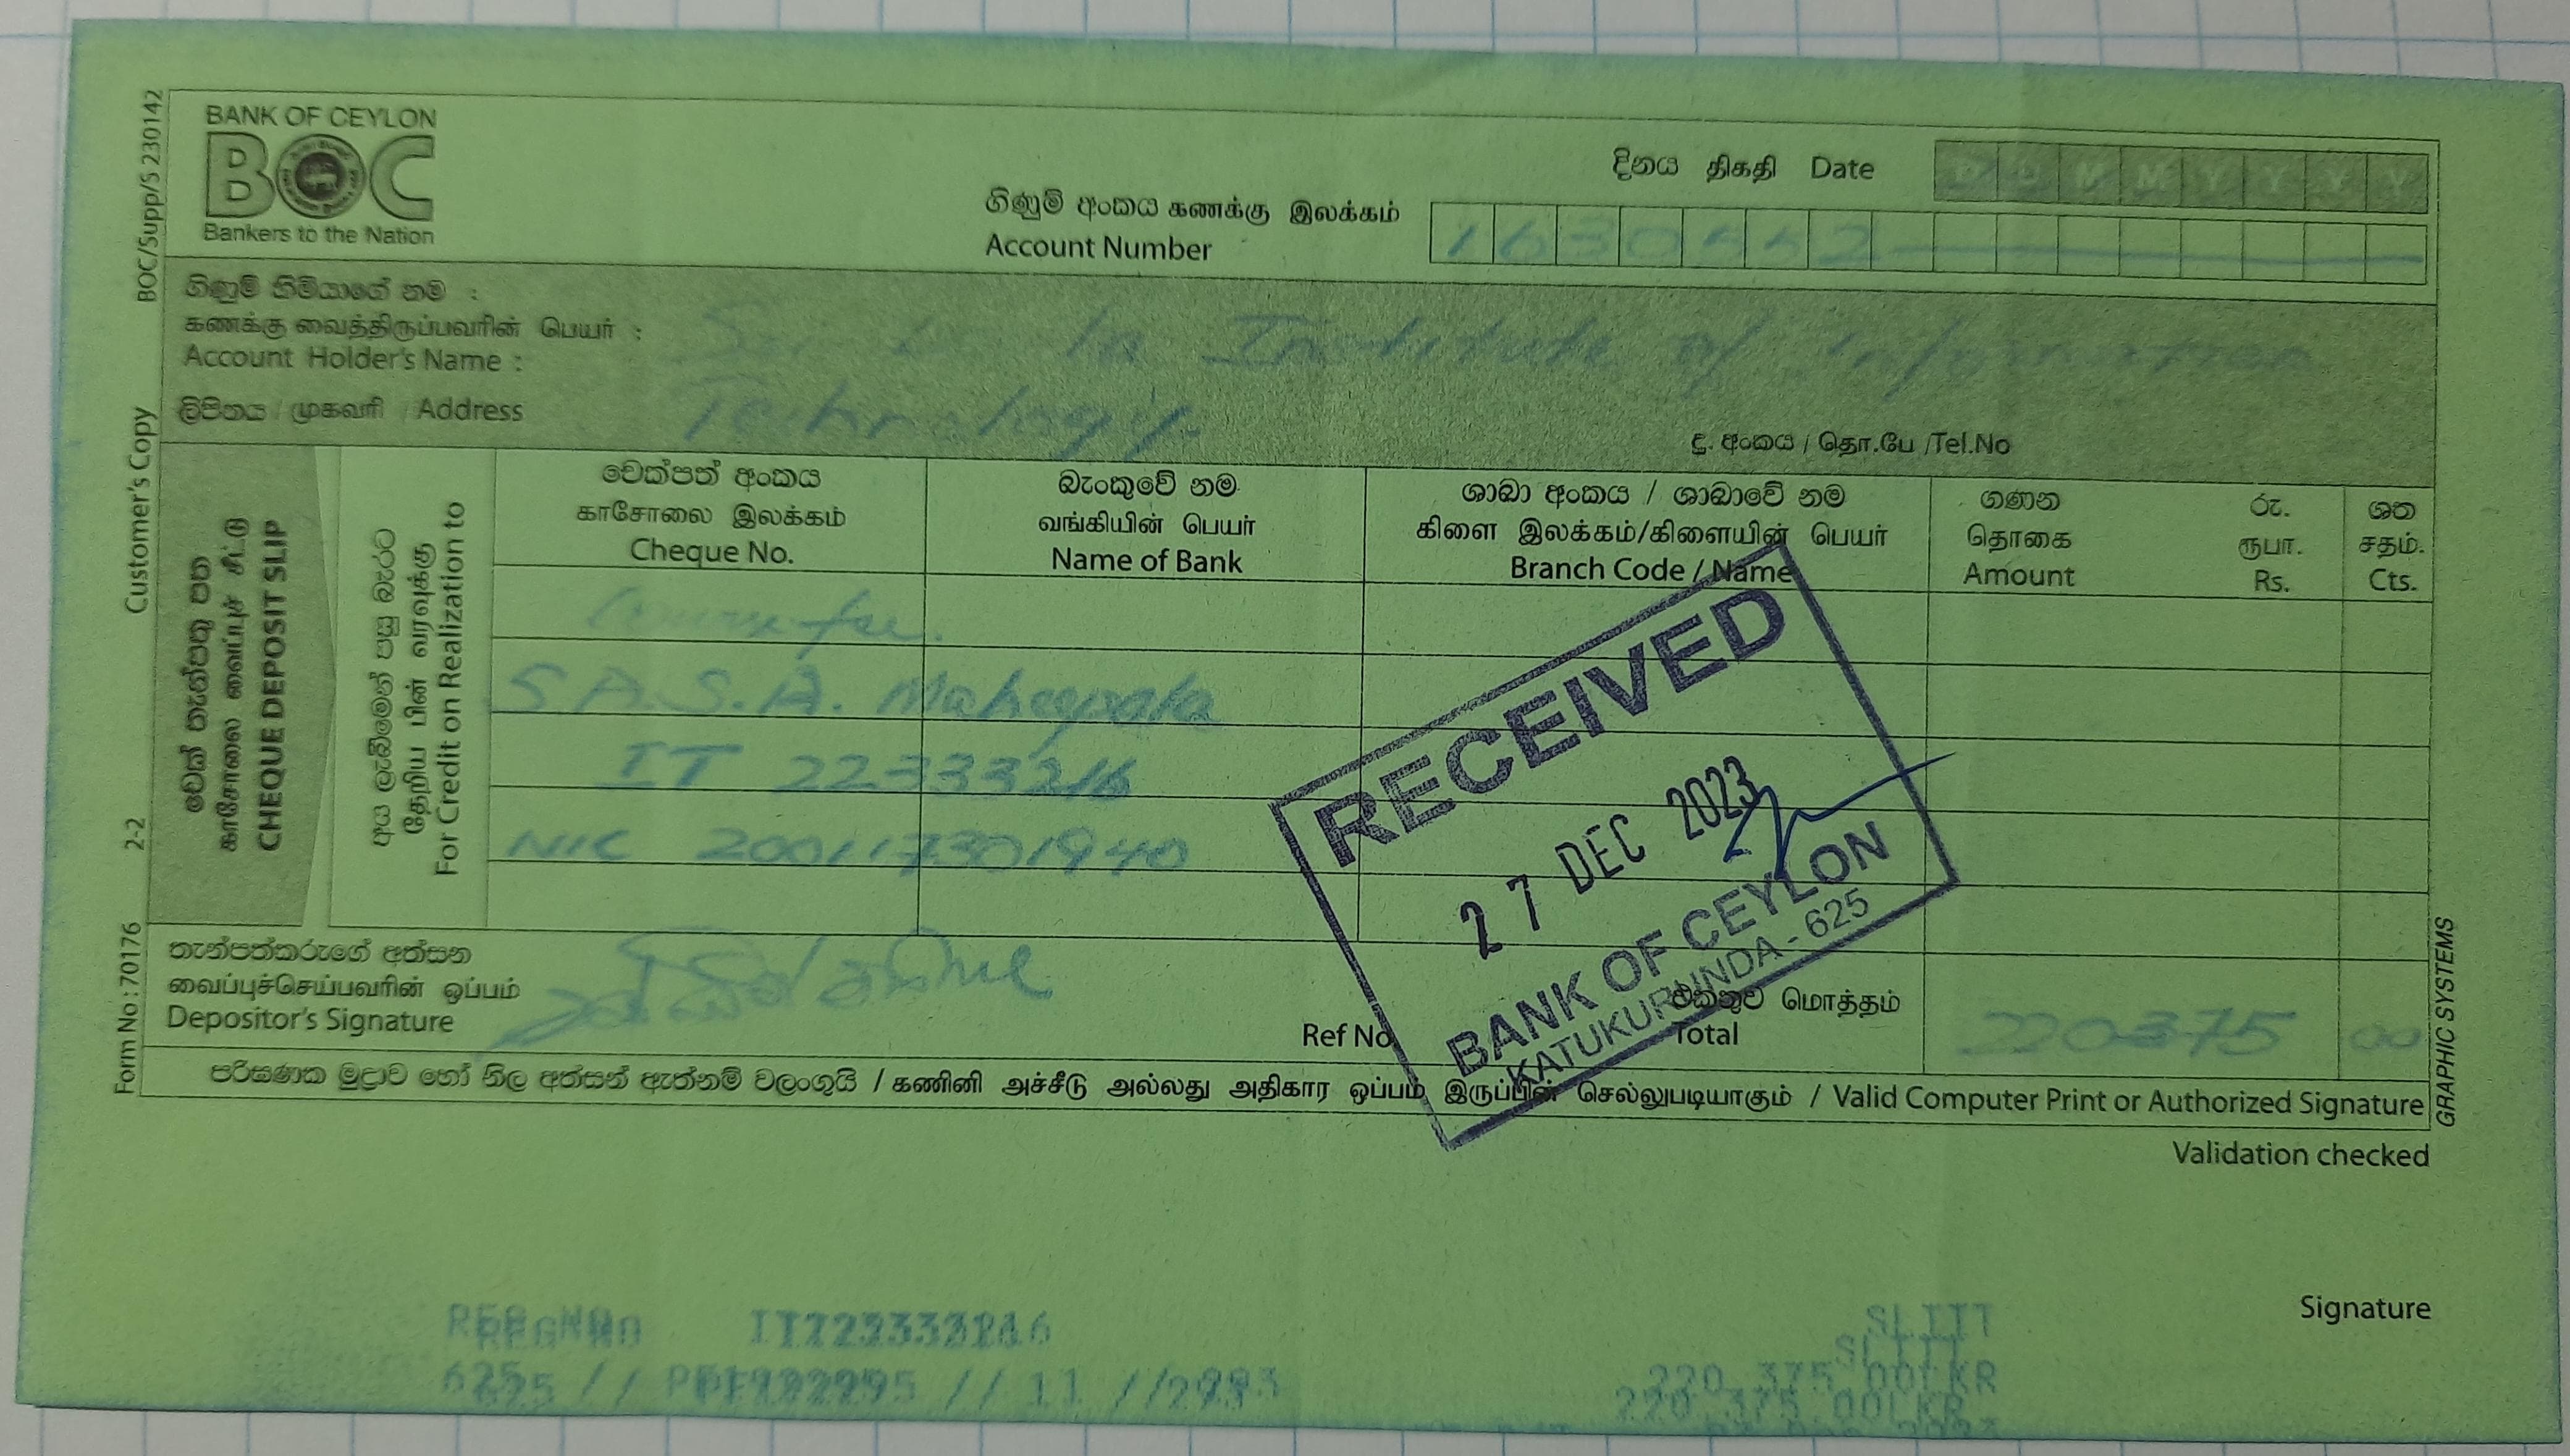 BOC/Supp/S 230142
BANK OF CEYLON
BOC
Bankers to the Nation
දිනය திகதி Date
D D M M Y Y Y Y
ගිණුම් අංකය கணக்கு இலக்கம்
Account Number
1630552
ගිණුම් හිමියාගේ නම :
கணக்கு வைத்திருப்பவரின் பெயர் :
Account Holder's Name :
Institute of Information
Technology
ලිපිනය / முகவரி / Address
දු. අංකය / தொ.பே /Tel.No
Customer's Copy
2-2
Form No : 70176
චෙක් තැන්පතු පත
காசோலை வைப்புச் சீட்டு
CHEQUE DEPOSIT SLIP
අය ලැබීමෙන් පසු බැරට
தேறிய பின் வரவுக்கு
For Credit on Realization to
චෙක්පත් අංකය
காசோலை இலக்கம்
Cheque No.
බැංකුවේ නම
வங்கியின் பெயர்
Name of Bank
ශාඛා අංකය / ශාඛාවේ නම
கிளை இலக்கம்/கிளையின் பெயர்
Branch Code / Name
ගණන රු. ශත
தொகை ரூபா. சதம்.
Amount Rs. Cts.
Course fee.
S A.S.A. Maheepala
IT 22333216
NIC 200117301940
RECEIVED
27 DEC 2023
BANK OF CEYLON
KATUKURUNDA - 625
තැන්පත්කරුගේ අත්සන
வைப்புச்செய்பவரின் ஒப்பம்
Depositor's Signature
Ref No
එකතුව மொத்தம்
Total
220375 00
පරිගණක මුද්‍රාව හෝ නිල අත්සන් ඇත්නම් වලංගුයි / கணினி அச்சீடு அல்லது அதிகார ஒப்பம் இருப்பின் செல்லுபடியாகும் / Valid Computer Print or Authorized Signature
GRAPHIC SYSTEMS
Validation checked
Signature
REG NO IT22333216
SLIIT
625 // // 11 //
220 375.00LKR